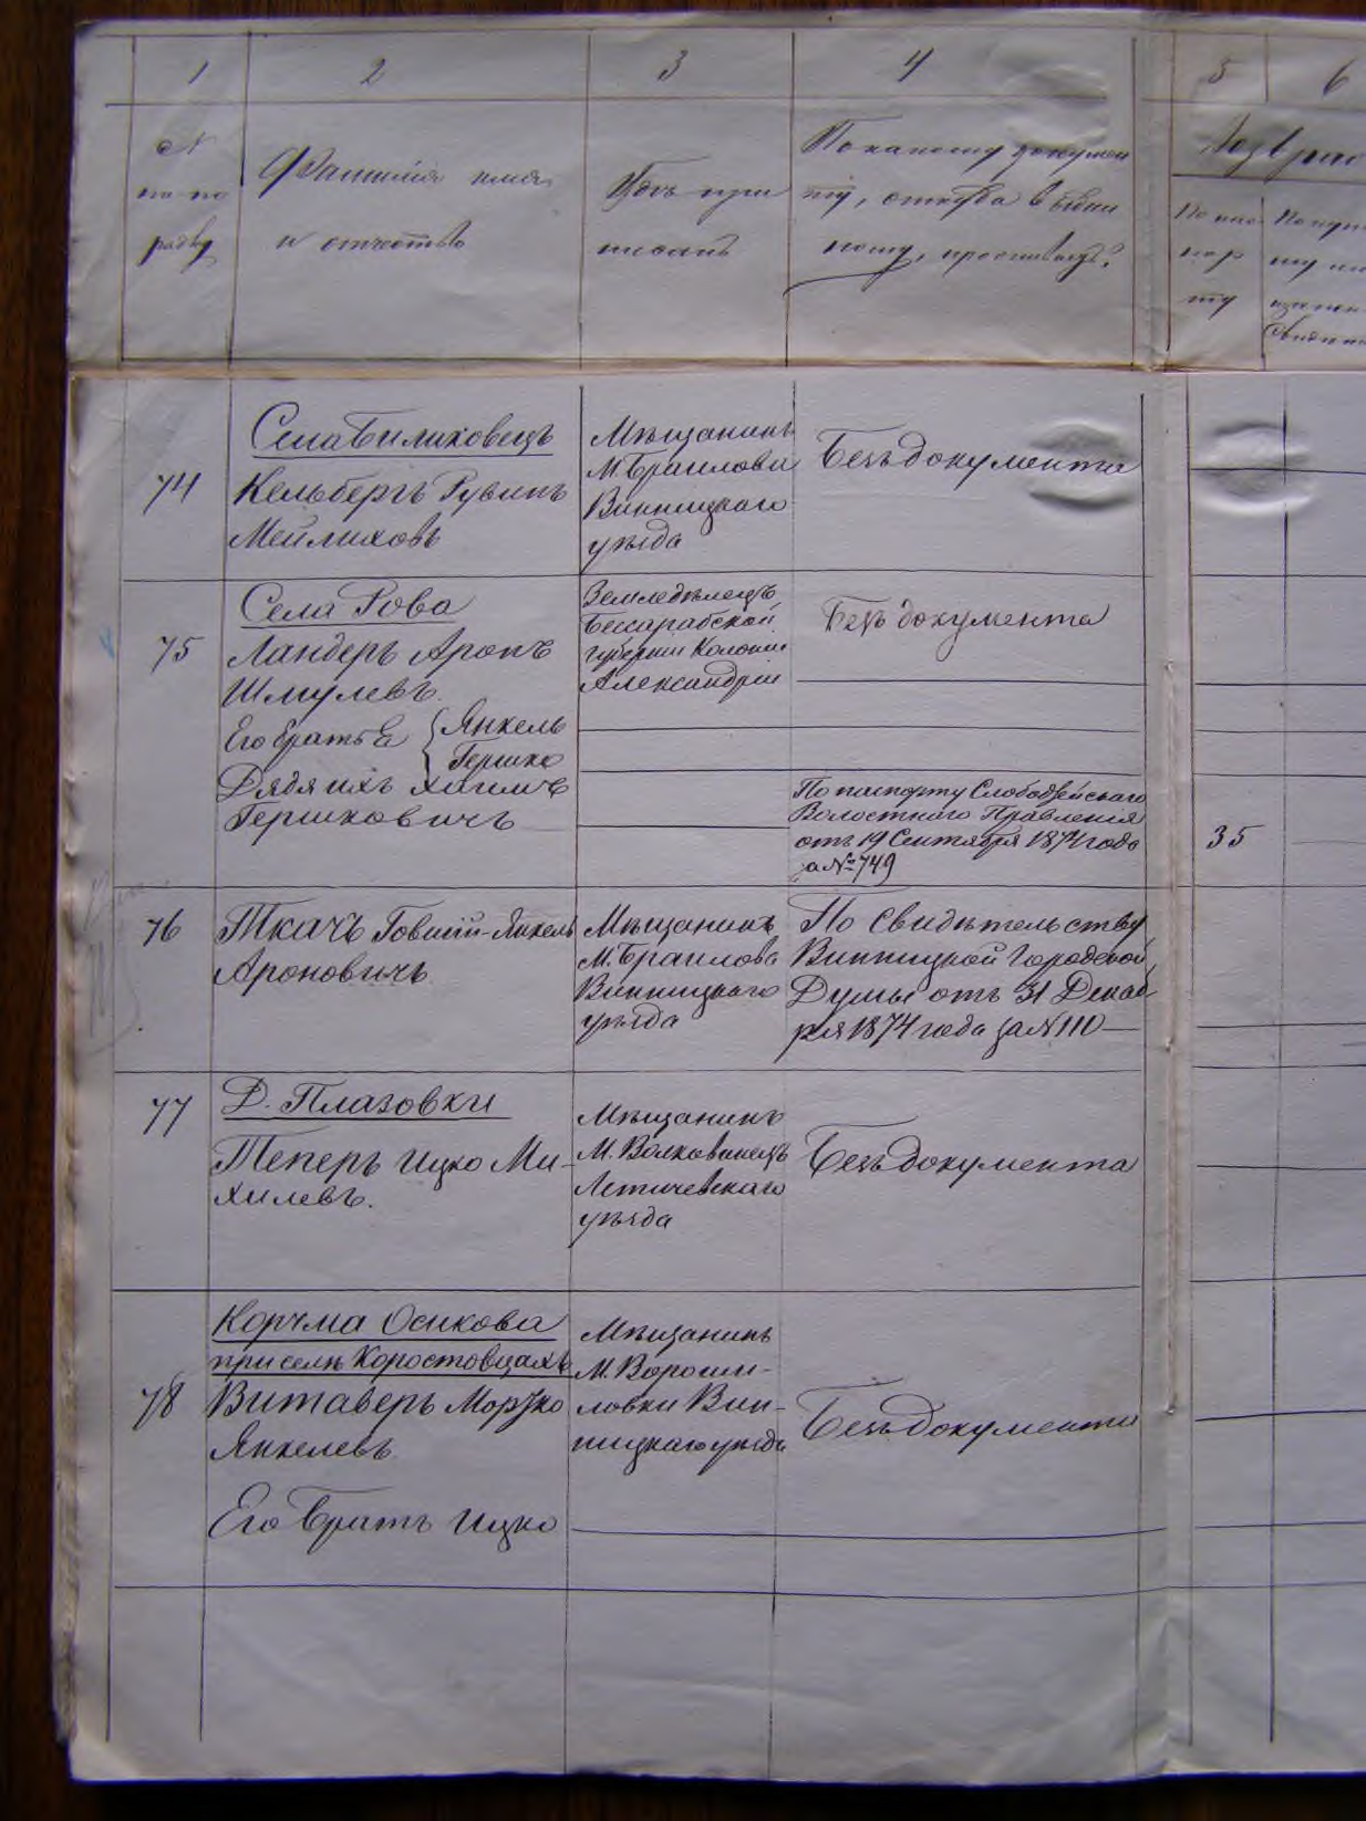 1 2 3 4 5 6
№ по по рядку
Фамилія имя
и отчество
Гдѣ при
писанъ
По какому докумен
ту, откуда выдан
ному, проживаетъ?
Возврас
По пас
пор
ту
Села Билиховецъ
74 Кельбергъ Рувинъ
Мейлиховъ
Мѣщанинъ
М. Браилова
Винницкаго
уѣзда
Безъ документа
Села Рова
75 Ландеръ Аронъ
Шмулевъ
Его братья { Янкель
Гершко
Дядя ихъ Хаимъ
Гершковичъ
Земледѣлецъ
Бессарабской
губерніи Колоніи
Александріи
Безъ документа
По паспорту Слободзейскаго
Волостного Правленія
отъ 19 Сентября 1874 года
за № 749
35
76 Ткачъ Говшій-Янкель
Ароновичъ
Мѣщанинъ
М. Браилова
Винницкаго
уѣзда
По Свидѣтельству
Винницкой Городской
Думы отъ 31 Декаб-
ря 1874 года за N 110
77 Д. Плазовки
Теперъ Ицко Ми-
хилевъ.
Мѣщанинъ
М. Волковинецъ
Летичевскаго
уѣзда
Безъ документа
Корчма Осикова
при селѣ Коростовцахъ
78 Витаверъ Моржко
Янкелевъ
Его братъ Ицко
Мѣщанинъ
М. Вороши-
ловки Вин-
ницкаго уѣзда
Безъ документа